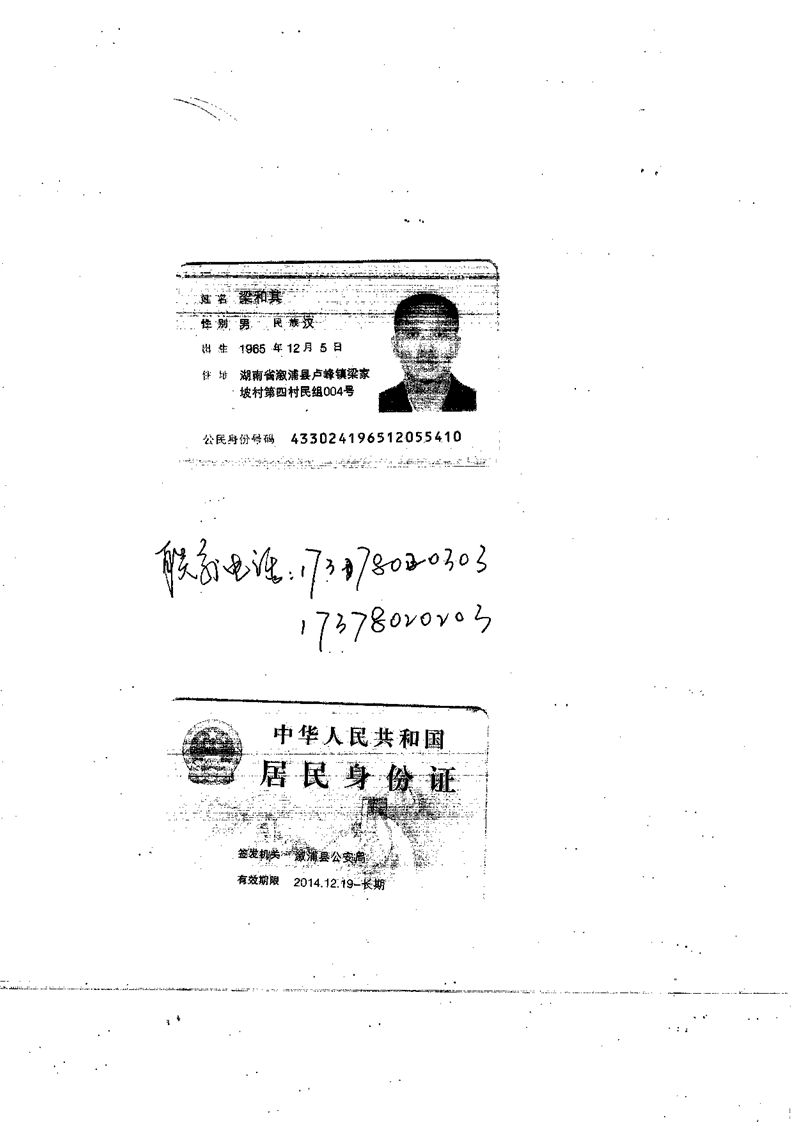 姓名 梁和其
性别 男 民族汉
出生 1965年12月5日
住址 湖南省溆浦县卢峰镇梁家
坡村第四村民组004号
公民身份号码 433024196512055410
联系电话:
17378020203
中华人民共和国
居民身份证
签发机关 溆浦县公安局
有效期限 2014.12.19-长期